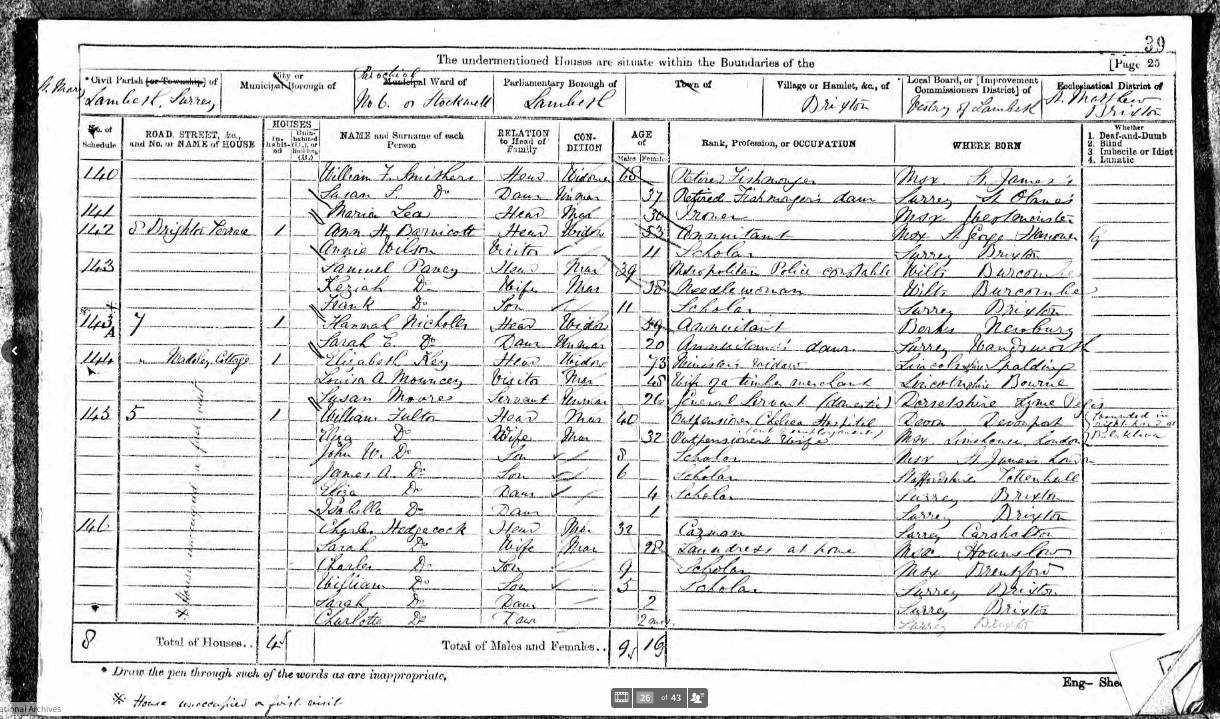 39
The undermentioned Houses are situate within the Boundaries of the [Page 25
Civil Parish [or Township] of City or Municipal Borough of Parochial Municipal Ward of Parliamentary Borough of Town of Village or Hamlet, &c., of Local Board, or [Improvement Commissioners District] of Ecclesiastical District of
Lambeth, Surrey No 6. or Stockwell Lambeth Brixton Vestry of Lambeth St. Matthew Brixton
No. of Schedule ROAD, STREET, &c., and No. or NAME of HOUSE HOUSES Inhabited Uninhabited (U.), or Building (B.) NAME and Surname of each Person RELATION to Head of Family CONDITION AGE of Males Females Rank, Profession, or OCCUPATION WHERE BORN Whether 1. Deaf-and-Dumb 2. Blind 3. Imbecile or Idiot 4. Lunatic
140 William F. Smithers Head Widower 68 Retired Fishmonger Msx. St. James's
Susan S. Do Daur Unmar 37 Retired Fishmonger's daur Surrey St Olaves
141 Maria Lea Head Mar 30 Ironer Msx. Westminster
142 Brighton Terrace 1 Ann H. Barnicott Head Widow 53 Annuitant Msx St. George Hanover Sq
Annie Wilson Visitor 11 Scholar Surrey Brixton
143 Samuel Pavey Head Mar 39 Metropolitan Police constable Wilts Burcombe
Keziah Do Wife Mar 38 Needlewoman Wilts Burcombe
Frank Do Son 11 Scholar Surrey Brixton
143 A 7 1 Hannah Nicholls Head Widow 59 Annuitant Berks Newbury
Sarah E. Do Daur Unmar 20 Annuitant's daur Surrey Wandsworth
144 " Cottage 1 Elizabeth Key Head Widow 73 Minister's widow Lincolnshire Spalding
Louisa A. Mouncey Visitor Mar 45 Wife of a timber merchant Lincolnshire Bourne
Susan Moore Servant Unmar 26 General Servant (domestic) Dorsetshire Lyme Regis
145 5 1 William Fulton Head Mar 40 Outpensioner Chelsea Hospital (out of employment) Devon Devonport wounded in right hand at Balaklava
Do Wife Mar 32 Outpensioner's Wife Msx. Limehouse, London
John W. Do Son 8 Scholar Msx St. James's London
James A. Do Son 6 Scholar Staffordshire Tettenhall
Eliza Do Daur 4 Scholar Surrey Brixton
Isabella Do Daur 1 Surrey Brixton
146 Charles Hedgecock Head Mar 32 Carman Surrey Carshalton
Sarah Do Wife Mar 28 Laundress at home Msx. Hounslow
Charles Do Son 9 Scholar Msx Brentford
William Do Son 5 Scholar Surrey Brixton
Sarah Do Daur 2 Surrey Brixton
Charlotte Do Daur 2 mos. Surrey Brixton
※ House unoccupied on first visit
8 Total of Houses.. 4 Total of Males and Females.. 9 16
* Draw the pen through such of the words as are inappropriate.
Eng— Shee
※ House unoccupied on first visit
26 of 43
ational Archives